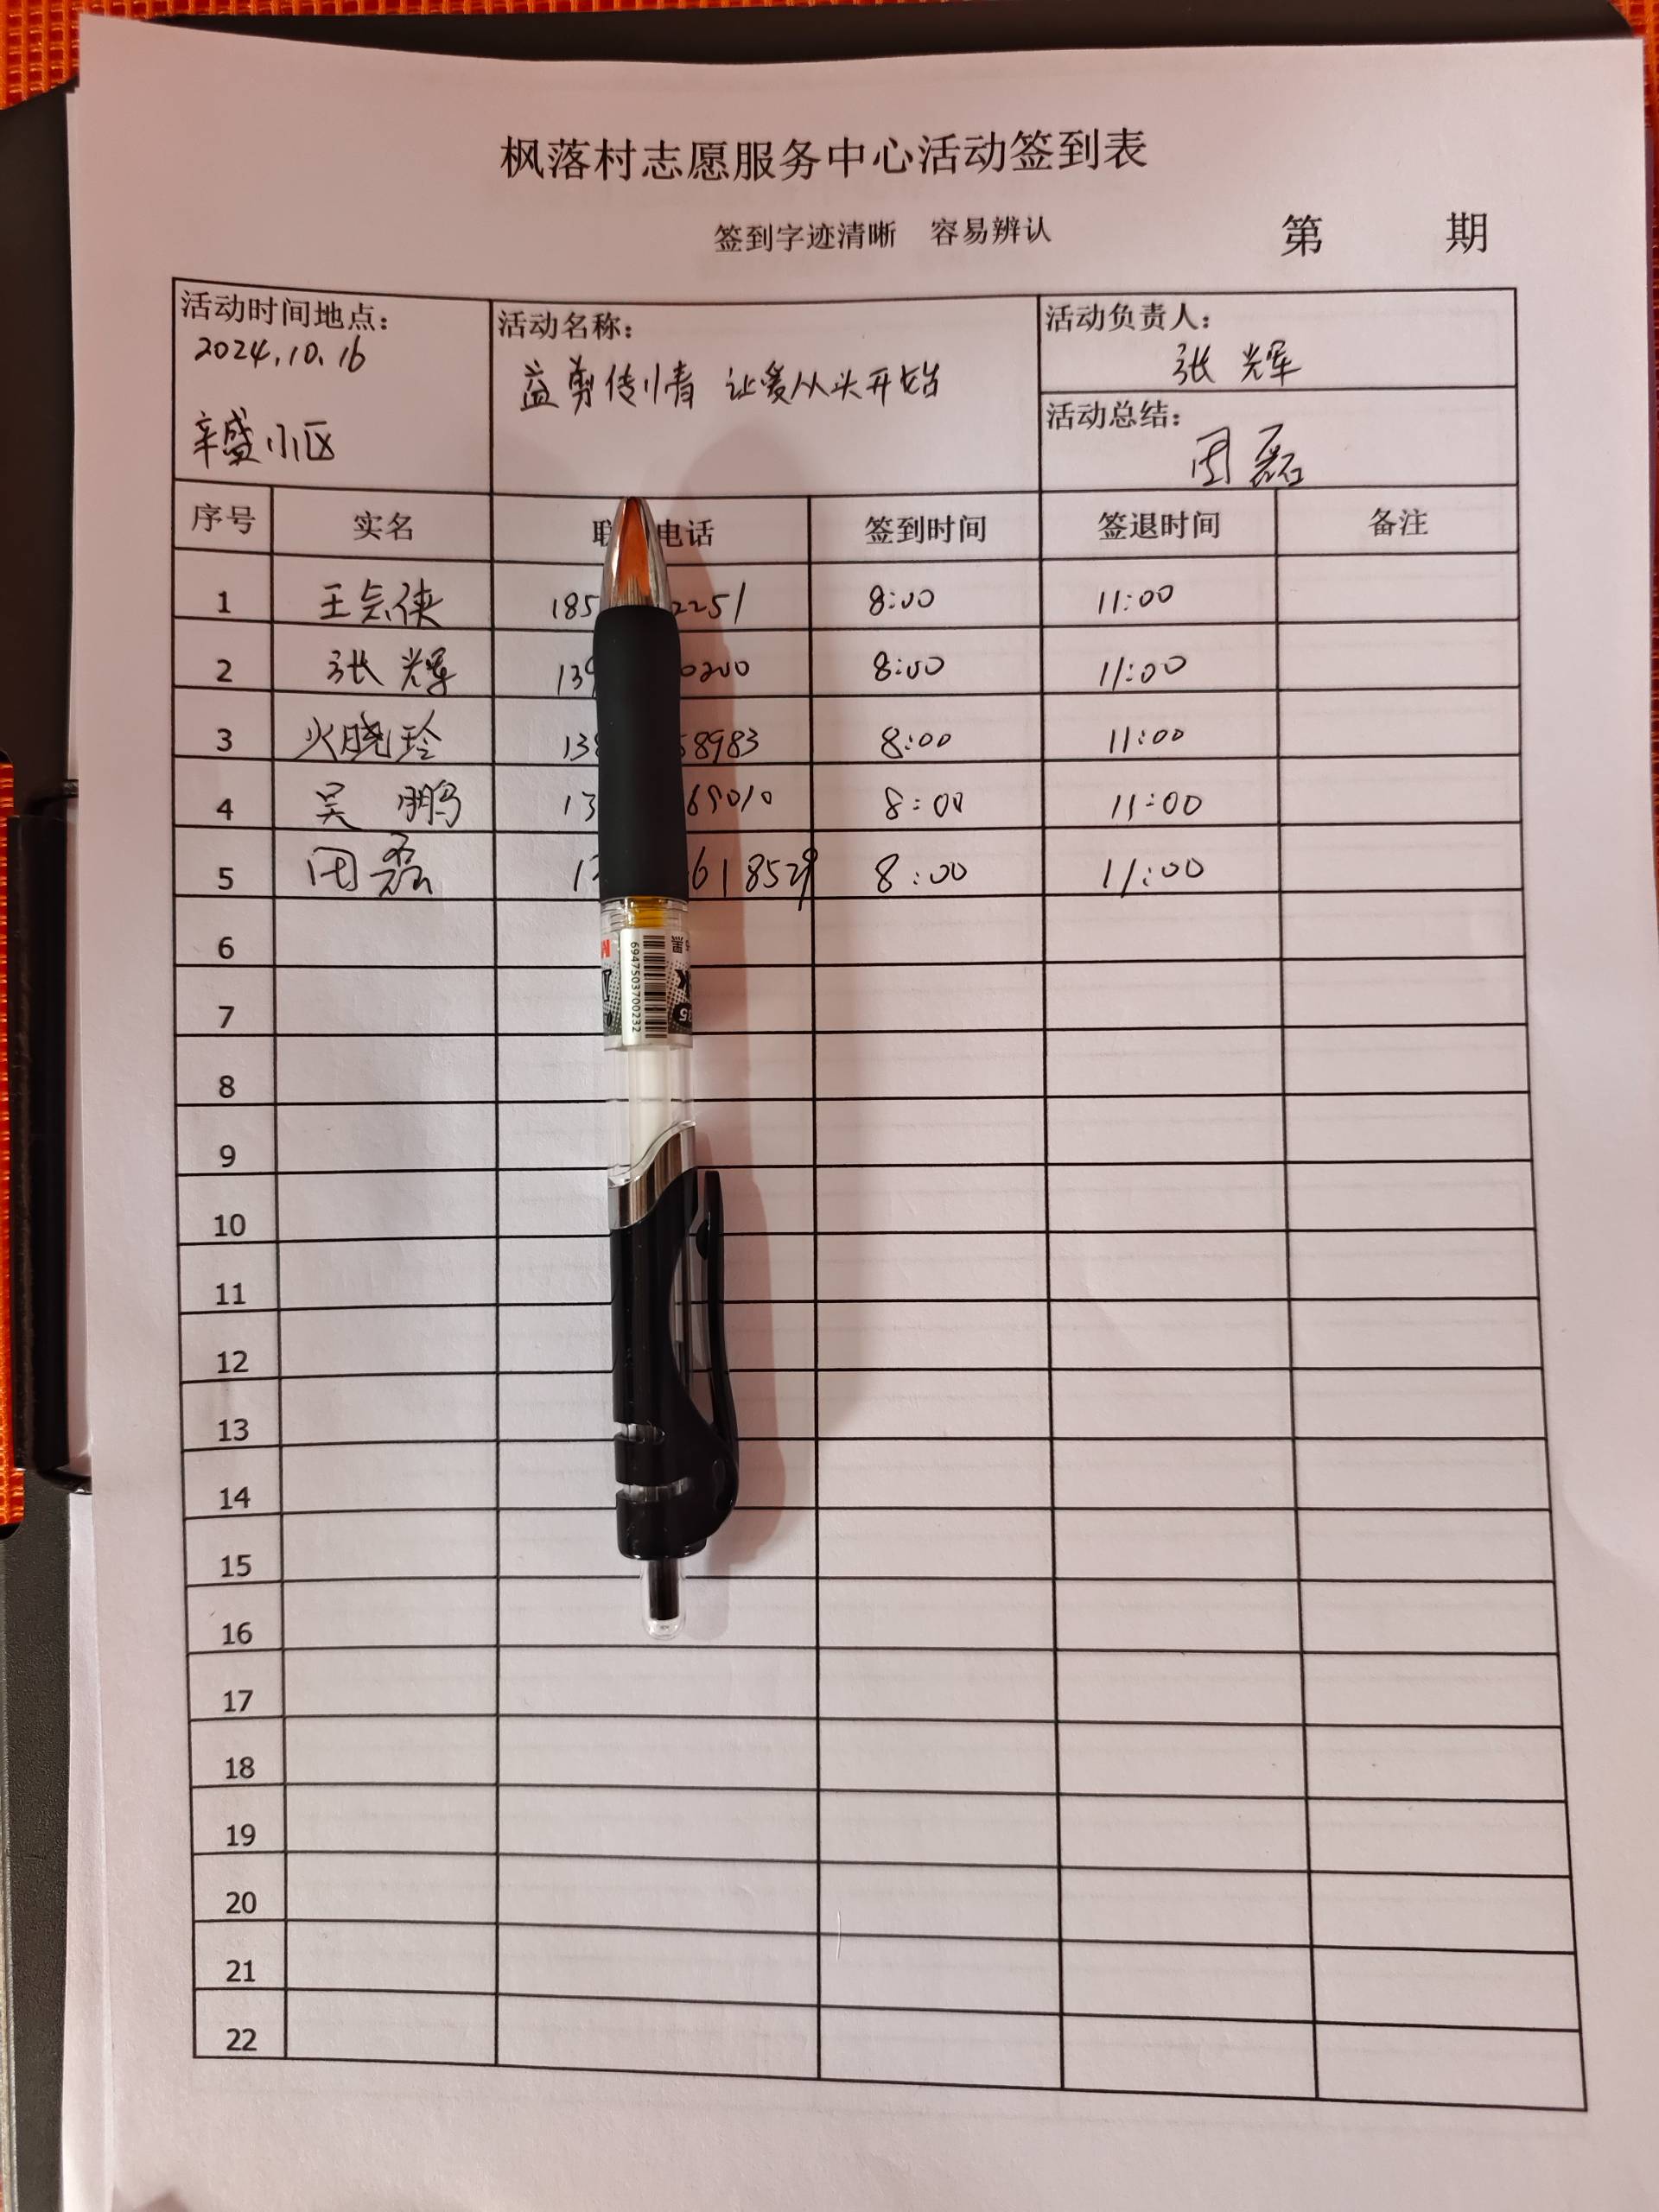 枫落村志愿服务中心活动签到表
签到字迹清晰 容易辨认 第 期
活动时间地点： 活动名称： 活动负责人：
2024.10.16 益剪传情 让爱从头开始 张辉
辛盛小区 活动总结： 周磊
序号 实名 电话 签到时间 签退时间 备注
1 王 侠 185 2251 8:00 11:00
2 张辉 139 0200 8:00 11:00
3 火晓玲 138 58983 8:00 11:00
4 吴鹏 13 69010 8:00 11:00
5 周磊 13 618529 8:00 11:00
6
6947503700232
7
8
9
10
11
12
13
14
15
16
17
18
19
20
21
22